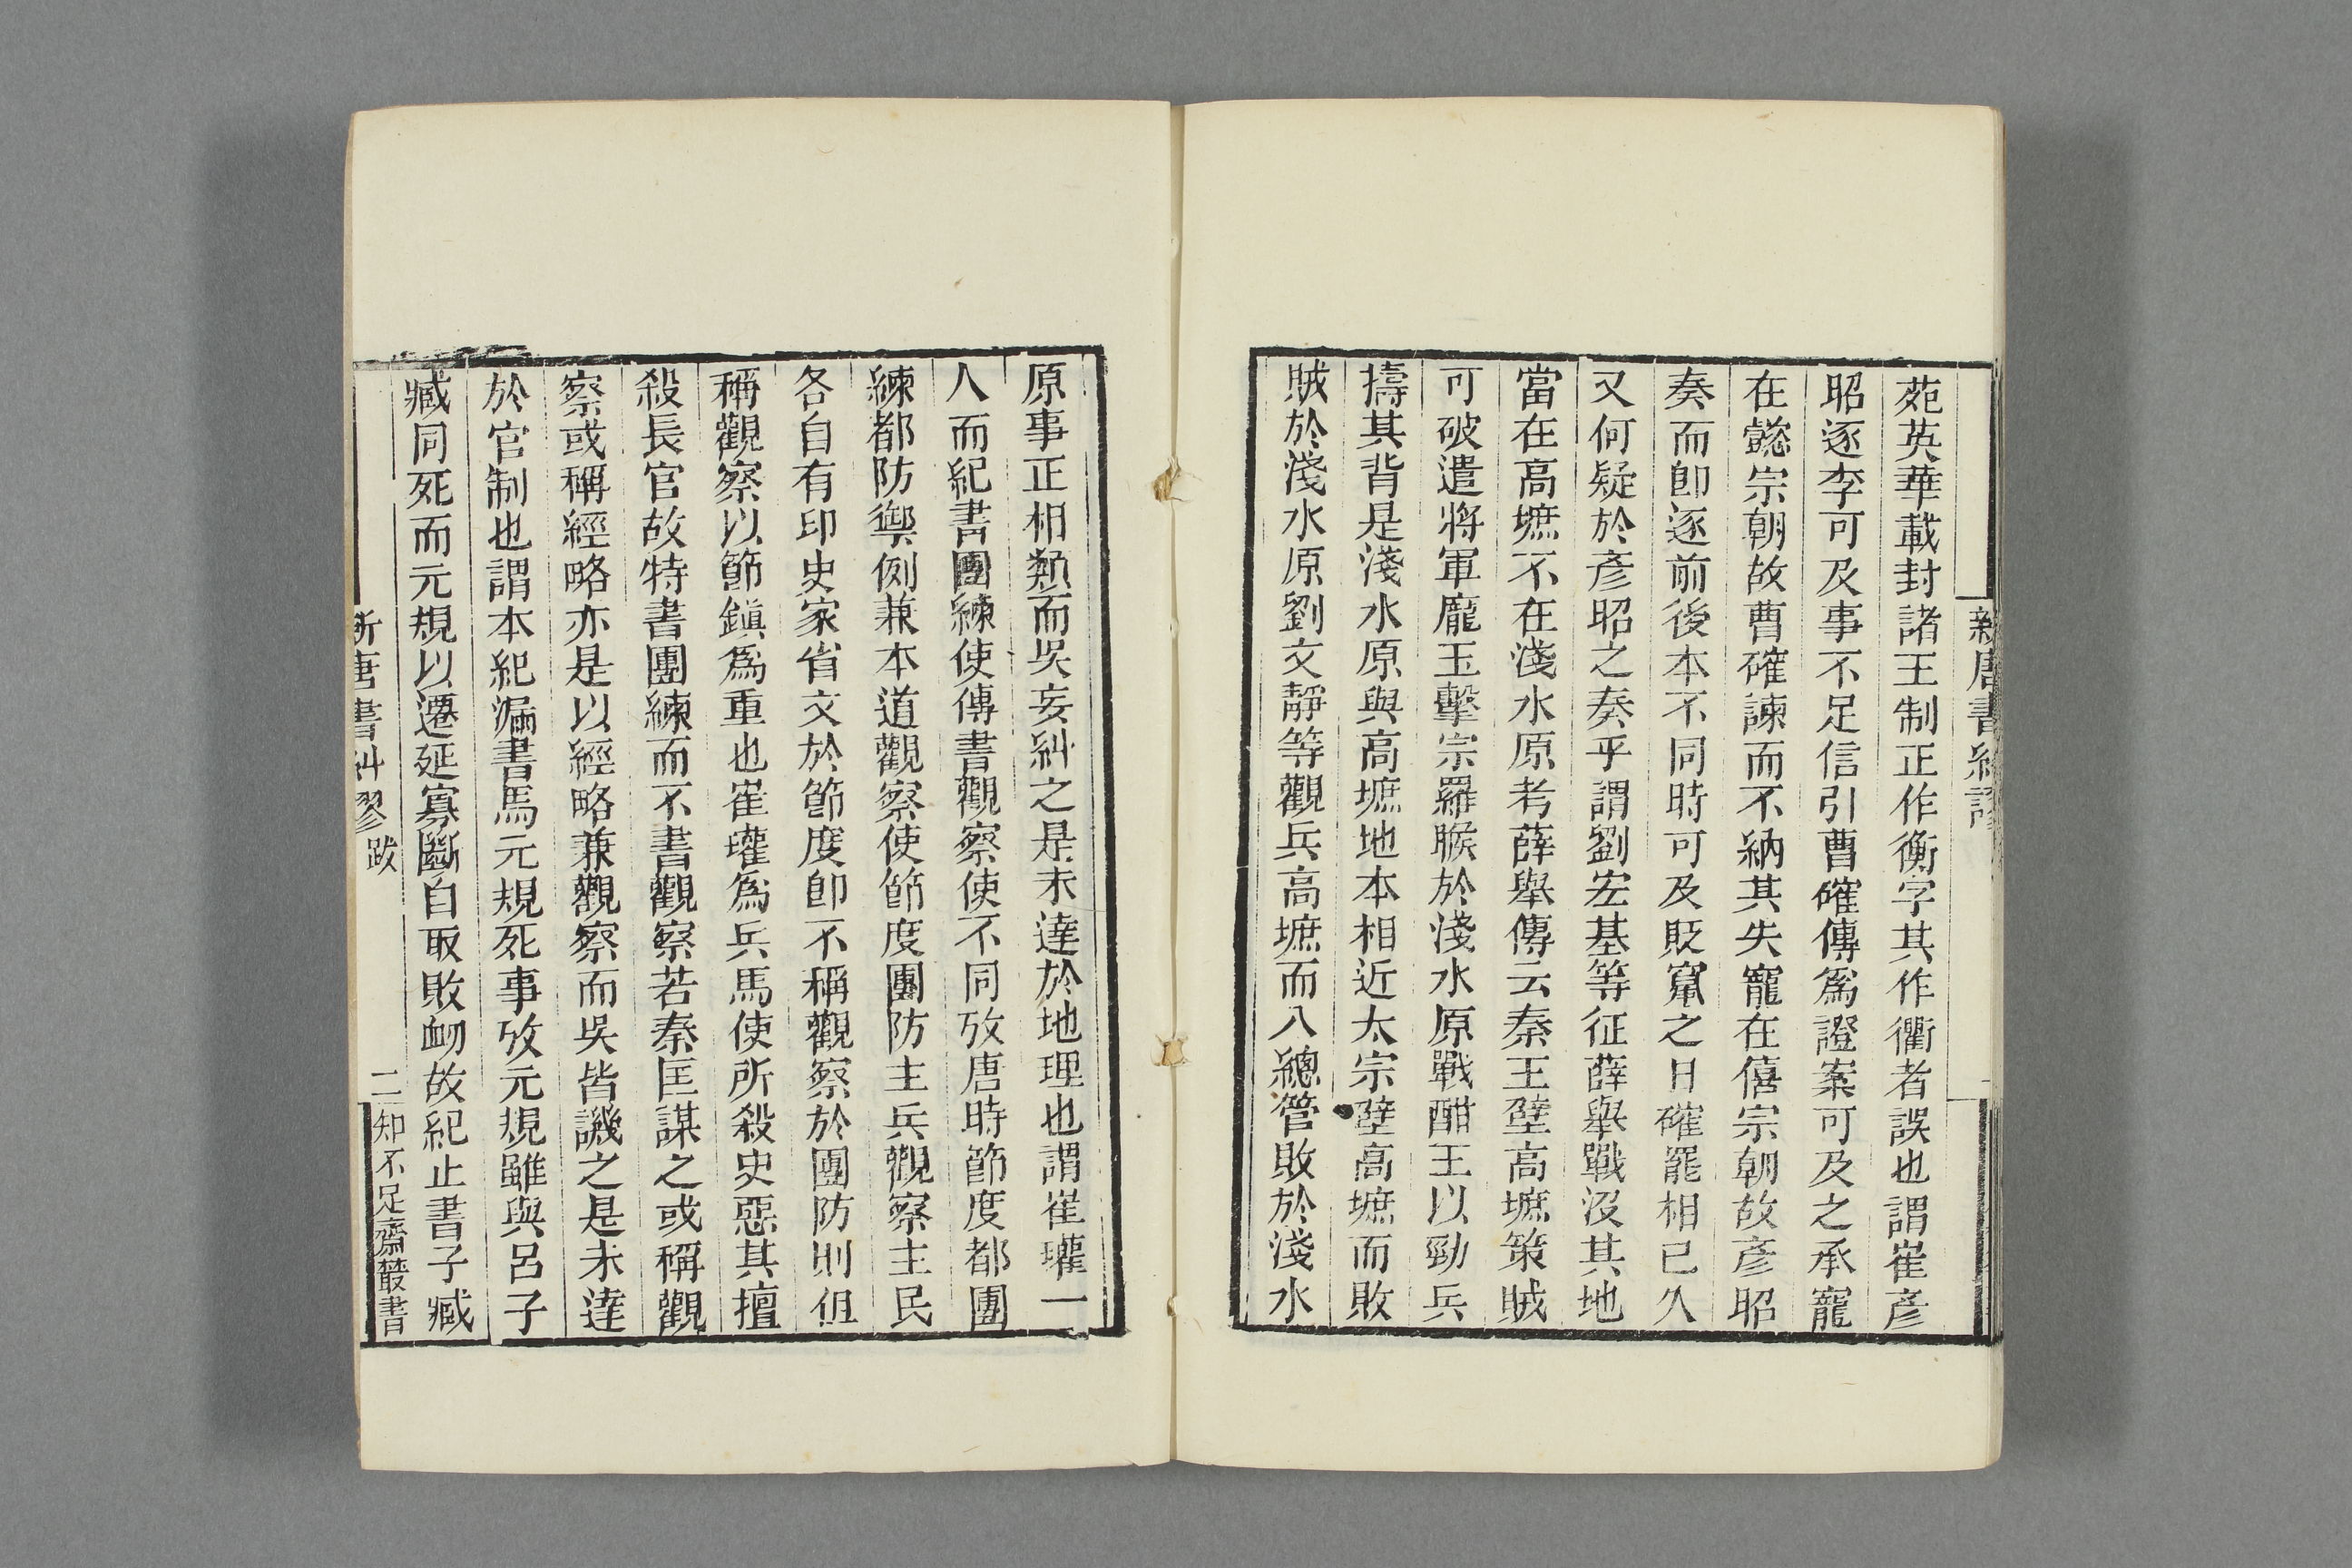 新唐書糾謬
苑英華載封諸王制正作衡字其作衢者誤也謂崔彥
昭逐李可及事不足信引曹確傳爲證案可及之承寵
在懿宗朝故曹確諫而不納其失寵在僖宗朝故彥昭
奏而卽逐前後本不同時可及貶竄之日確罷相已久
又何疑於彥昭之奏乎謂劉宏基等征薛舉戰沒其地
當在高墌不在淺水原考薛舉傳云秦王壁高墌策賊
可破遣將軍龐玉擊宗羅睺於淺水原戰酣王以勁兵
擣其背是淺水原與高墌地本相近太宗壁高墌而敗
賊於淺水原劉文靜等觀兵高墌而八總管敗於淺水
原事正相類而吳妄糾之是未達於地理也謂崔瓘一
人而紀書團練使傳書觀察使不同攷唐時節度都團
練都防禦例兼本道觀察使節度團防主兵觀察主民
各自有印史家省文於節度卽不稱觀察於團防則但
稱觀察以節鎮爲重也崔瓘爲兵馬使所殺史惡其擅
殺長官故特書團練而不書觀察若秦匡謀之或稱觀
察或稱經略亦是以經略兼觀察而吳皆譏之是未達
於官制也謂本紀漏書馬元規死事攷元規雖與呂子
臧同死而元規以遷延寡斷自取敗衂故紀止書子臧
新唐書糾謬跋
二
知不足齋叢書